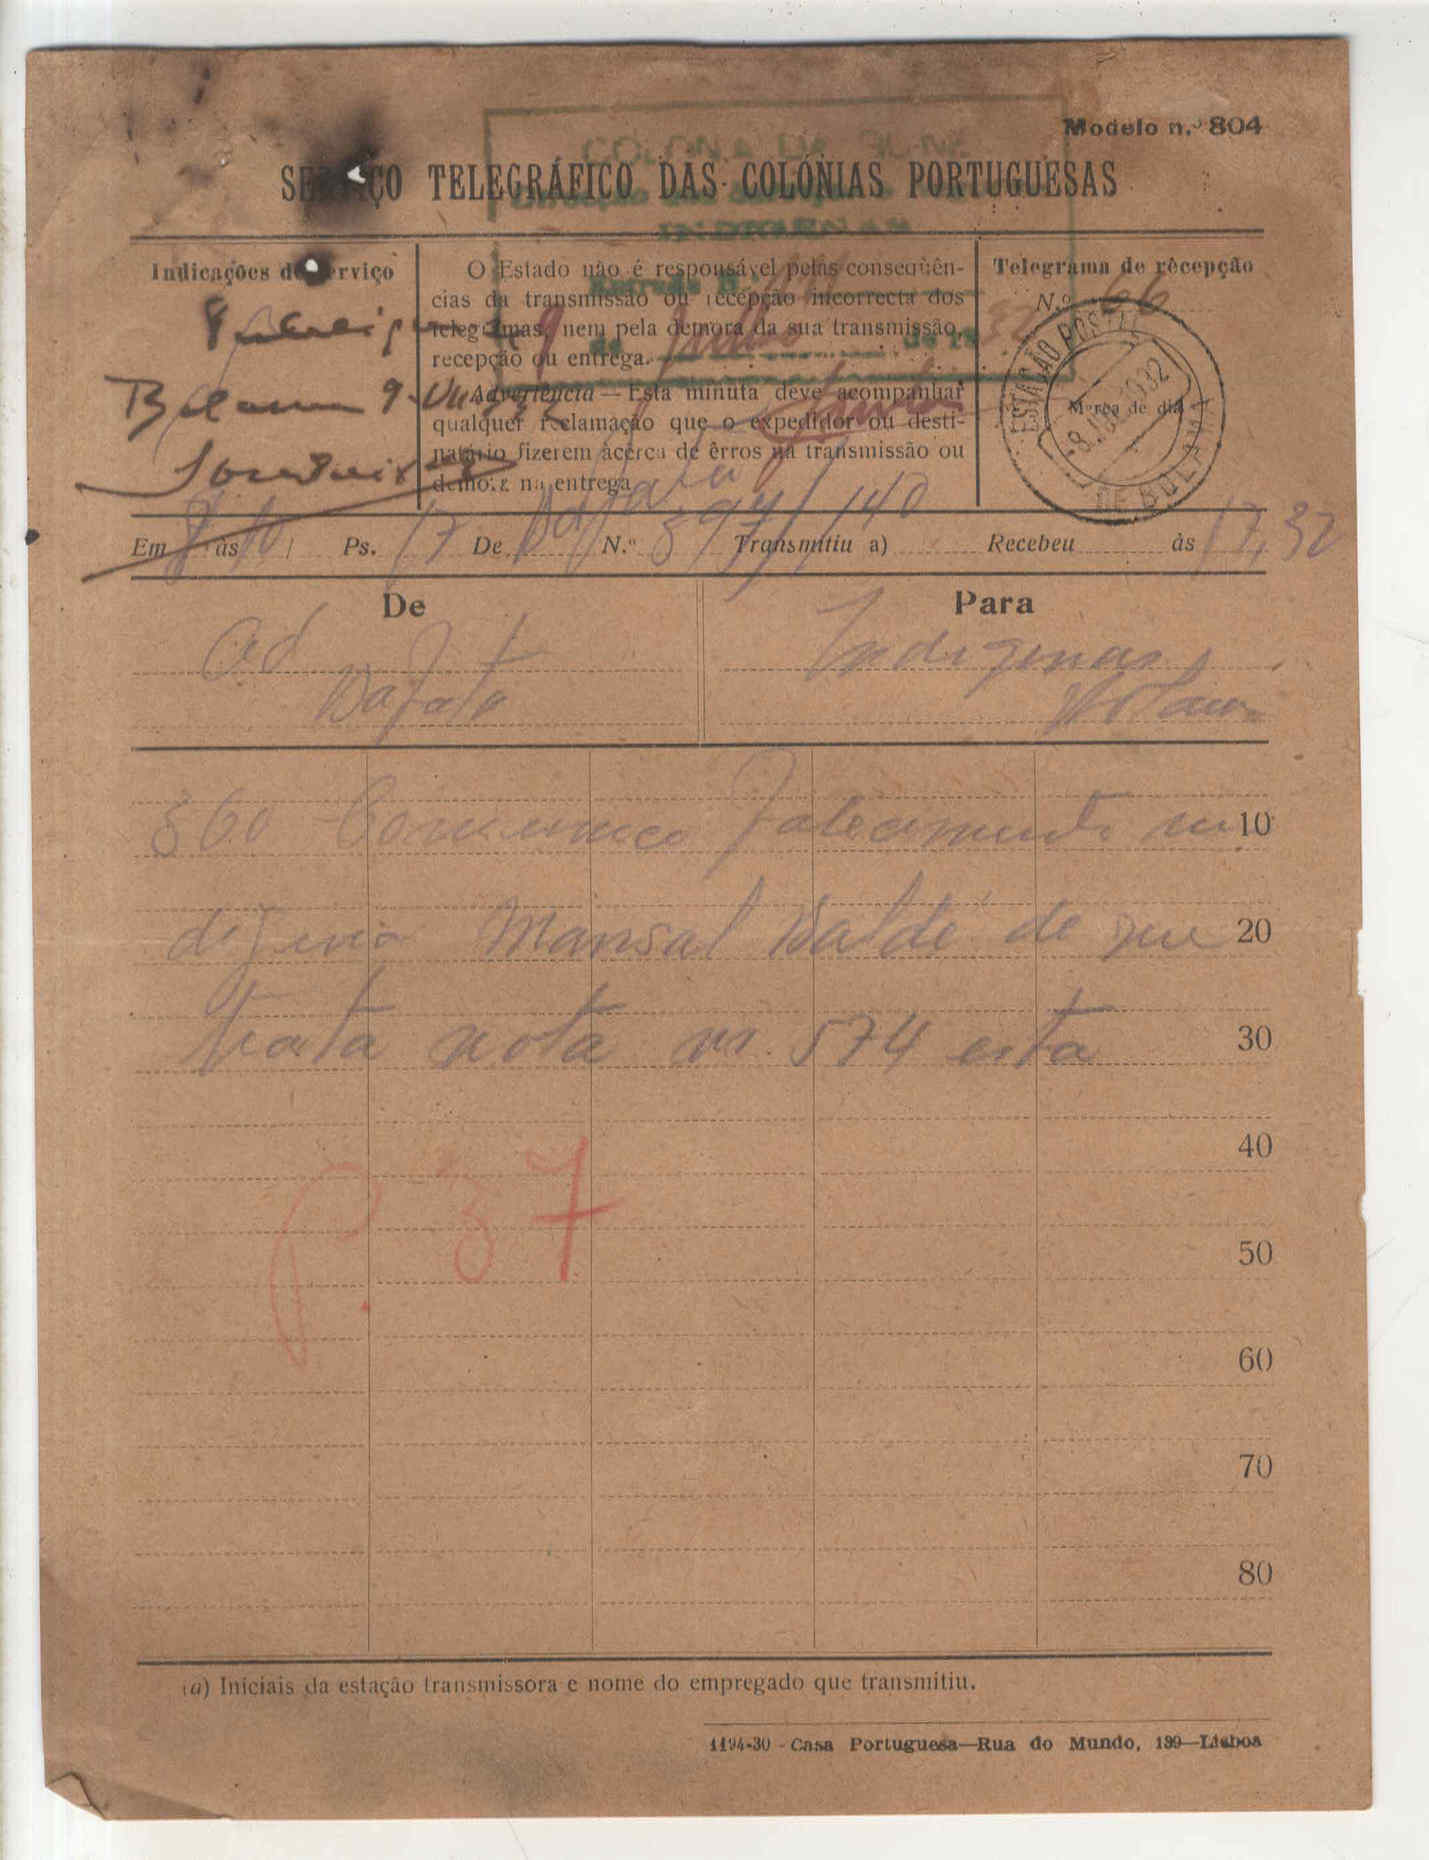 Modelo n.º 804
COLONIA DA GUINÉ
SERVIÇO TELEGRÁFICO DAS COLÓNIAS PORTUGUESAS
INDIGENAS
Indicações de serviço
O Estado não é responsável pelas conseqüên-
cias da transmissão ou recepção incorrecta dos
telegramas, nem pela demora da sua transmissão,
recepção ou entrega.
Advertência — Esta minuta deve acompanhar
qualquer reclamação que o expedidor ou desti-
natário fizerem àcêrca de êrros na transmissão ou
demora na entrega
Entrada N.º
9 de Julho de 1932
Telegrama de recepção
N.º 66
ESTAÇÃO POSTAL
Marca de dia
DE BOLAMA
Bolama 9
Em 8 às 10 Ps. 17 De Bafata N.º 597/140 Transmitiu a) Recebeu às 17,32
De
Para
Ad
Bafata
Indigenas
Bolama
860 Comunico falecimento in 10
digena Mansal Baldé de que 20
trata nota nr. 574 esta 30
40
P. 37
50
60
70
80
(a) Iniciais da estação transmissora e nome do empregado que transmitiu.
1194-30 - Casa Portuguesa—Rua do Mundo, 139—Lisboa